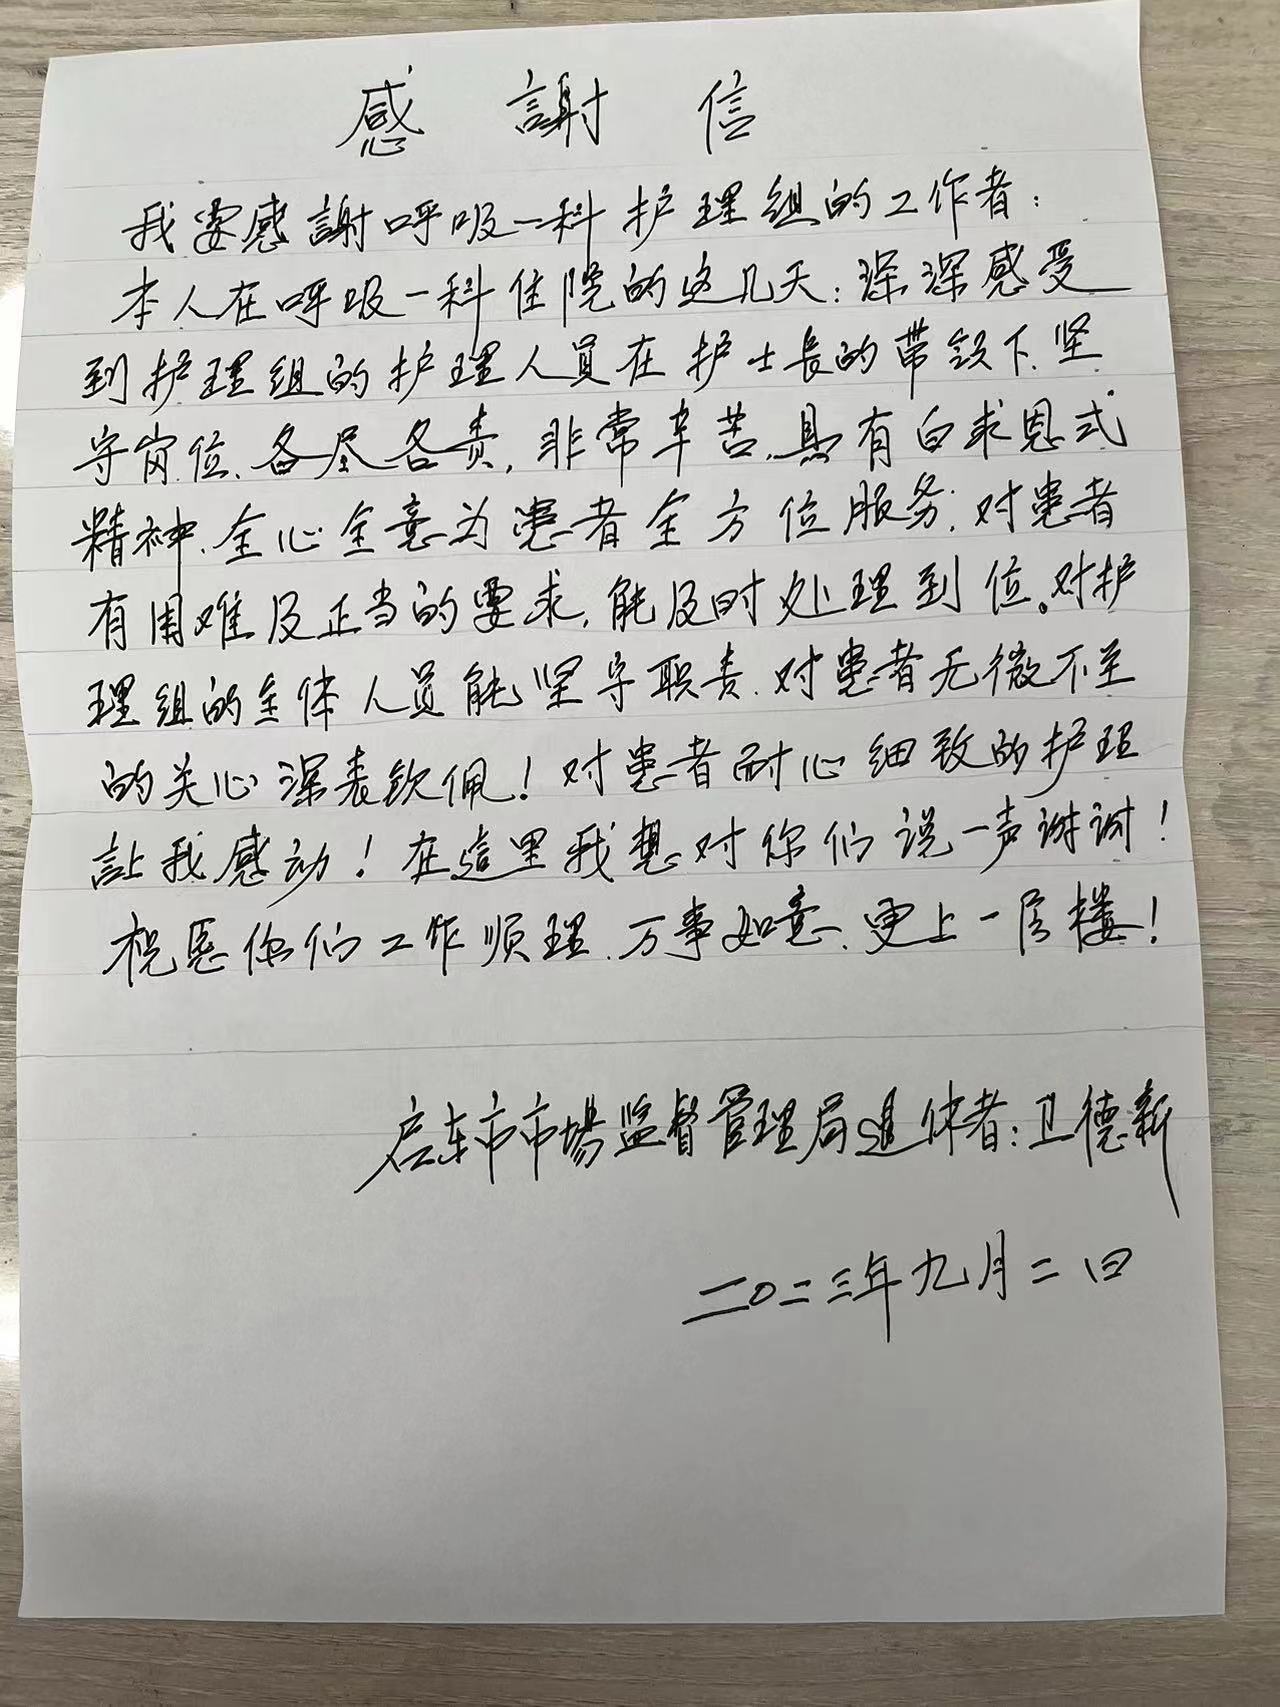 感謝信
我要感謝呼吸一科护理组的工作者：
本人在呼吸一科住院的这几天：深深感受
到护理组的护理人员在护士長的带领下、坚
守岗位、各尽各责，非常辛苦、具有白求恩式
精神、全心全意为患者全方位服务；对患者
有困难及正当的要求，能及时处理到位。对护
理组的全体人员能坚守职责、对患者无微不至
的关心深表钦佩！对患者耐心细致的护理
让我感动！在這里我想对你们说一声谢谢！
祝愿你们工作顺理、万事如意、更上一层楼！
启东市市場监督管理局退休者：卫德新
二〇二三年九月二日